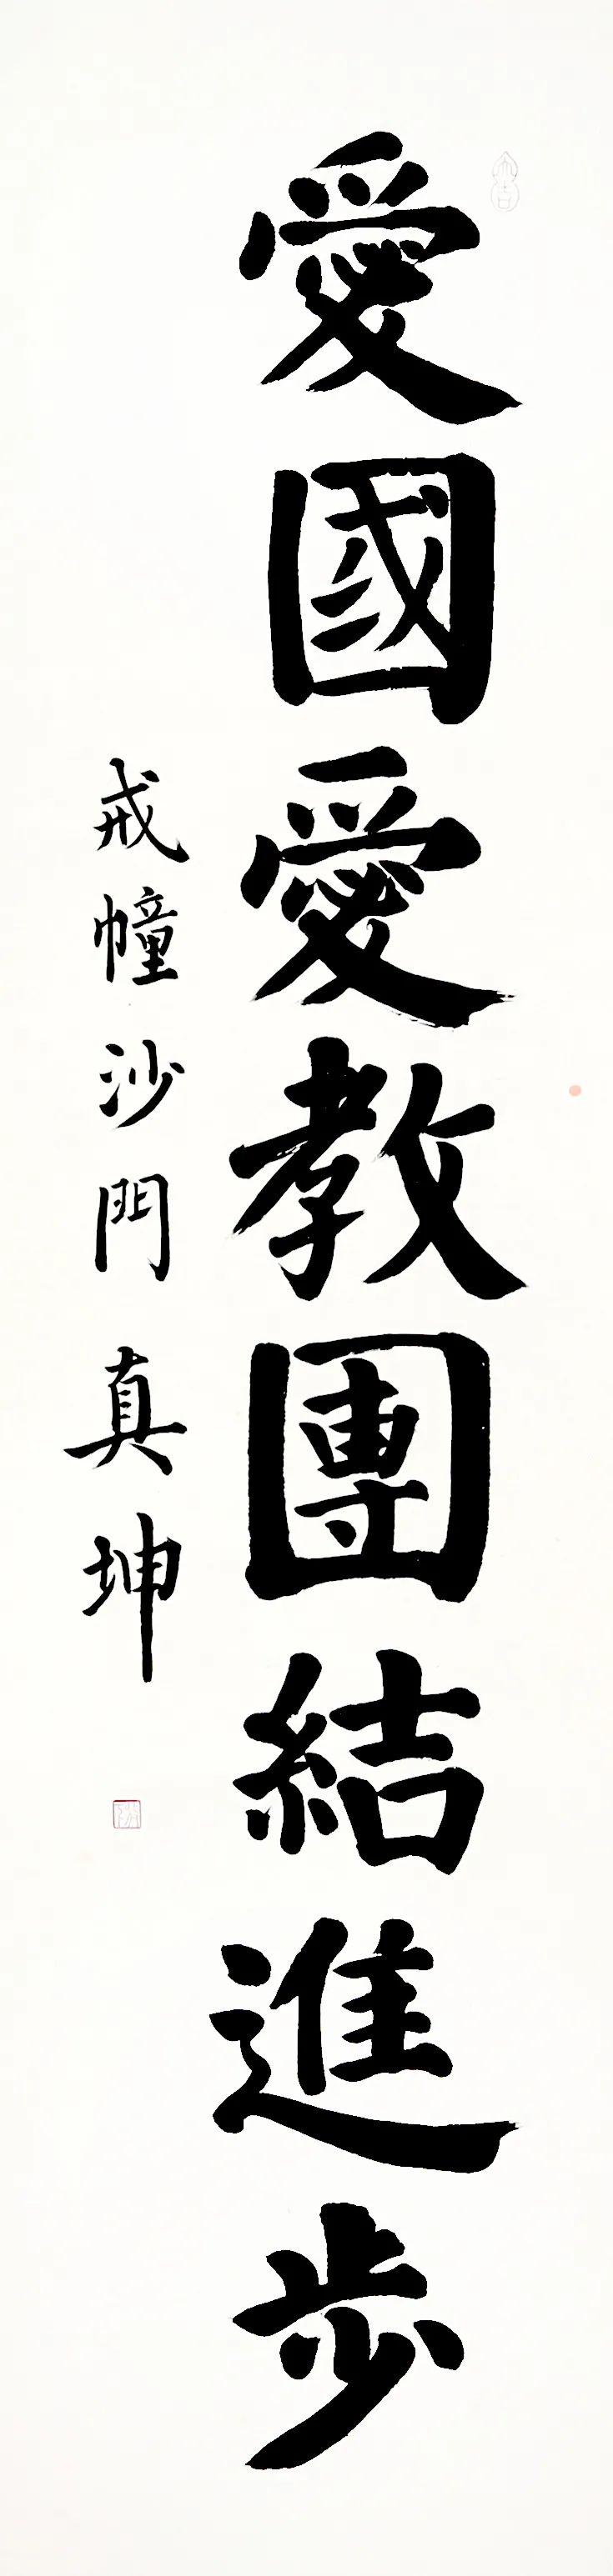 愛國愛教團結進步
戒幢沙門真坤